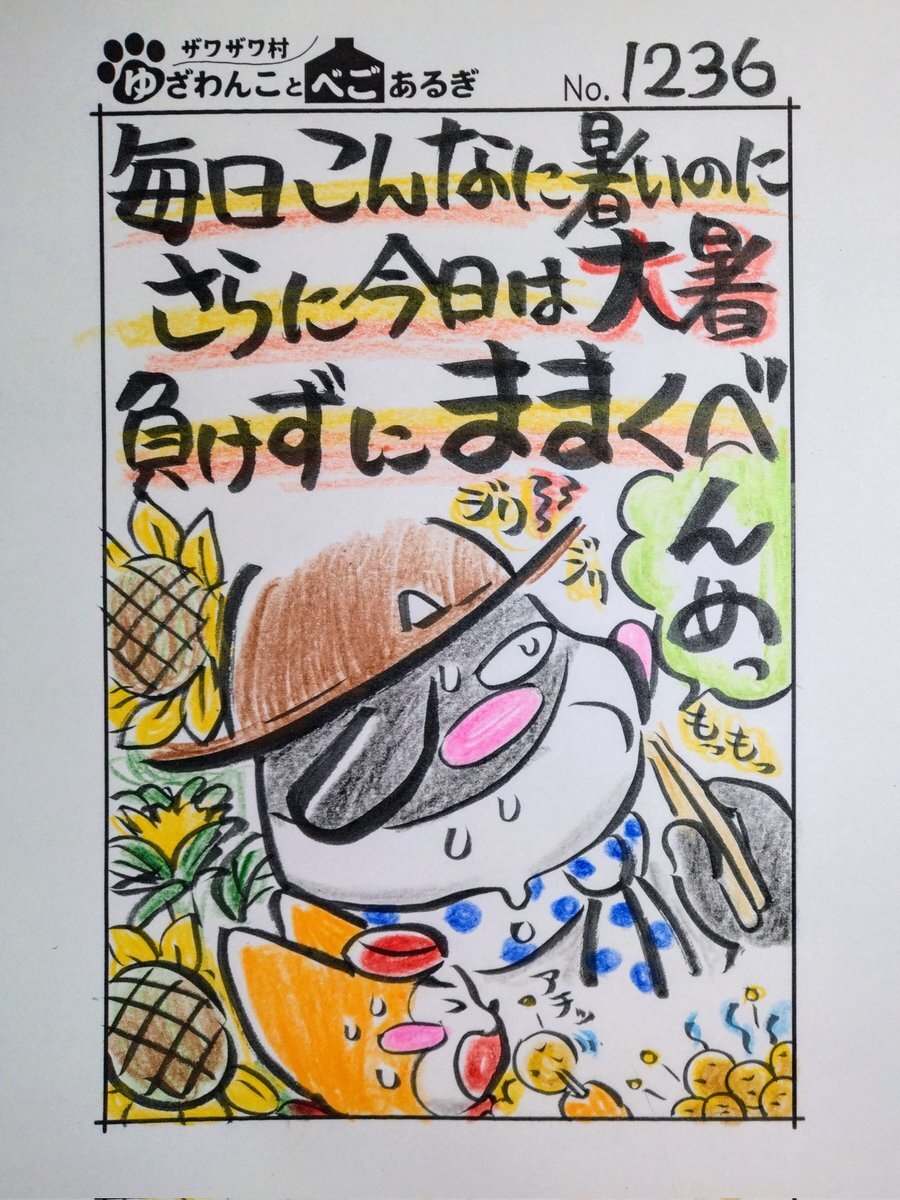 ザワザワ村
ゆざわんことべごあるぎ
No. 1236
毎日こんなに暑いのに
さらに今日は大暑
負けずにままくべ
んめっ
ジリ
ジリ
もっもっ
アチッ